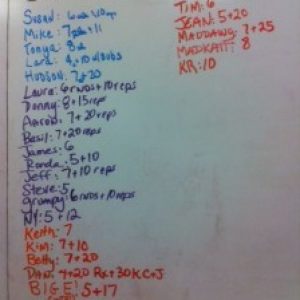 Susan: 6
Mike: 7 +11
Tonya: 8
Lara: 4+10 w/dubs
Hudson: 7+20
Laura: 6 rnds+10 reps
Donny: 8+15 reps
Aaron: 7+20 reps
Basil: 7+20 reps
James: 6
Ronda: 5+10
Jeff: 7+10 reps
Steve: 5
grumpy: 6 rnds+10 reps
NY: 5+12
Keith: 7
Kim: 7+10
Betty: 7+20
DAN: 4+20 Rx+30KC+J
BIGE! 5+17
TIM: 6
JEAN: 5+20
MADDAWG: 7+25
MADKAT: 8
KR: 10